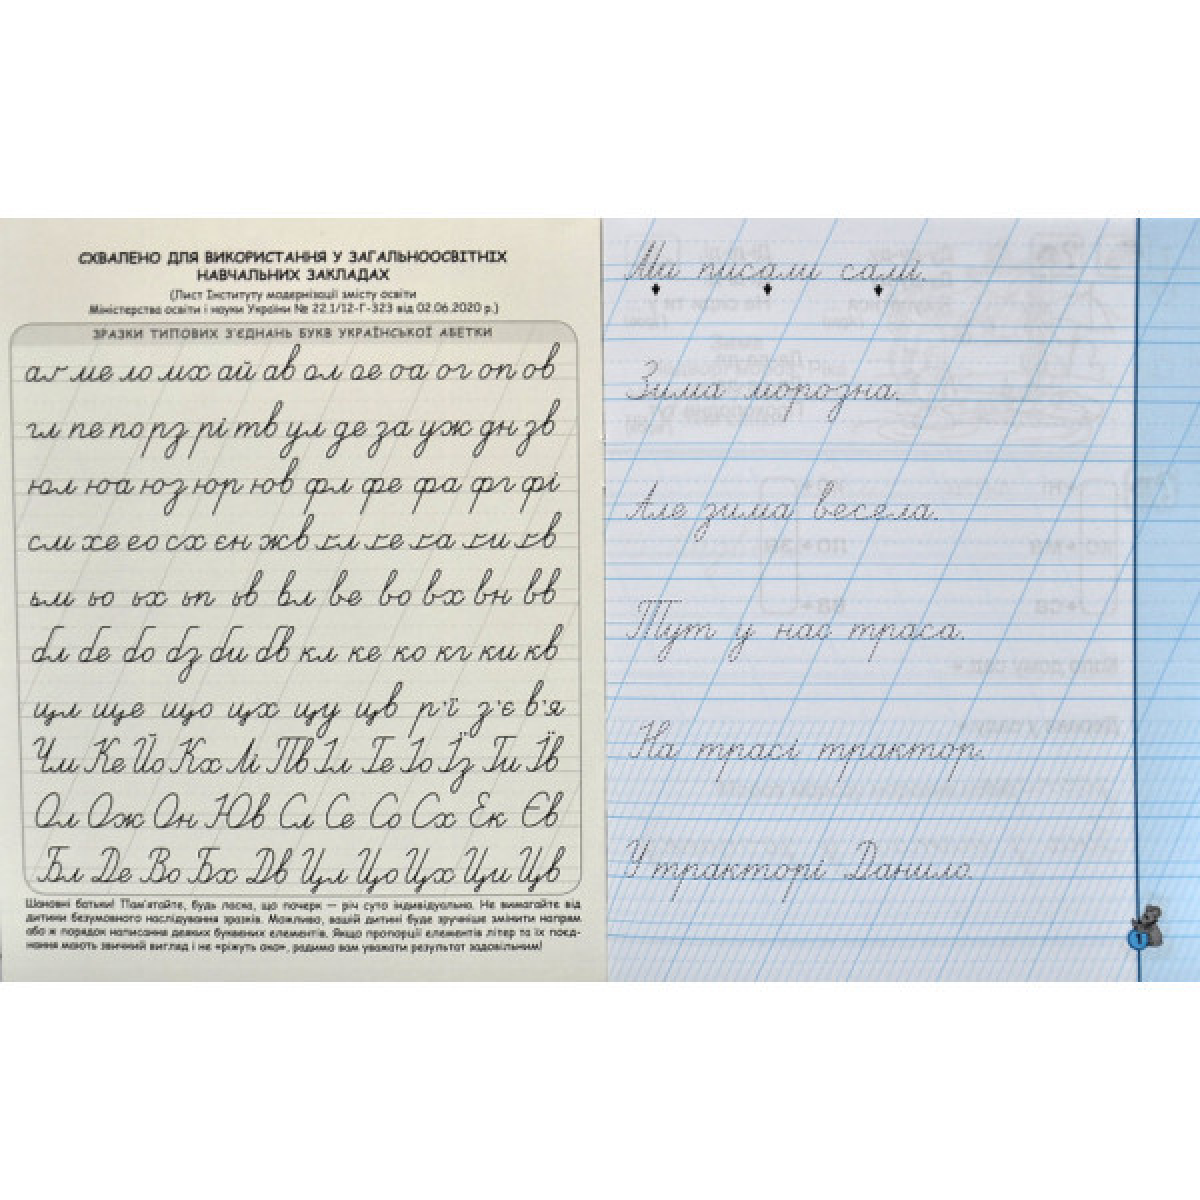 СХВАЛЕНО ДЛЯ ВИКОРИСТАННЯ У ЗАГАЛЬНООСВІТНІХ
НАВЧАЛЬНИХ ЗАКЛАДАХ
(Лист Інституту модернізації змісту освіти
Міністерства освіти і науки України № 22.1/12-Г-323 від 02.06.2020 р.)
ЗРАЗКИ ТИПОВИХ З'ЄДНАНЬ БУКВ УКРАЇНСЬКОЇ АБЕТКИ
ме ло мх ай ав ол ое оа ог оп ов
гл пе по рз рі тв ул де за уж дн зв
юл юа юз юр юв фл фе фа фг фі
см хе ео сх єн жв гл ге га ги гв
ьм ьо ьх ьп ьв вл ве во вх вн вв
бл бе бо бз би бв кл ке ко кг ки кв
щл ще що щх щу щв р'ї з'є в'я
Чм Ке Йо Кх Лі Пв Іл Ге Іо Їз Ги Їв
Ол Ож Он Юв Сл Се Со Сх Ек Єв
Бл Де Во Бх Дв Цл Цо Цх Ци Цв
Шановні батьки! Пам'ятайте, будь ласка, що почерк — річ суто індивідуальна. Не вимагайте від
дитини безумовного наслідування зразків. Можливо, вашій дитині буде зручніше змінити напрям
або ж порядок написання деяких буквених елементів. Якщо пропорції елементів літер та їх поєд-
нання мають звичний вигляд і не «ріжуть око», радимо вам уважати результат задовільним!
Ми писали самі.
Зима морозна.
Але зима весела.
Тут у нас траса.
На трасі трактор.
У тракторі Данило.
1